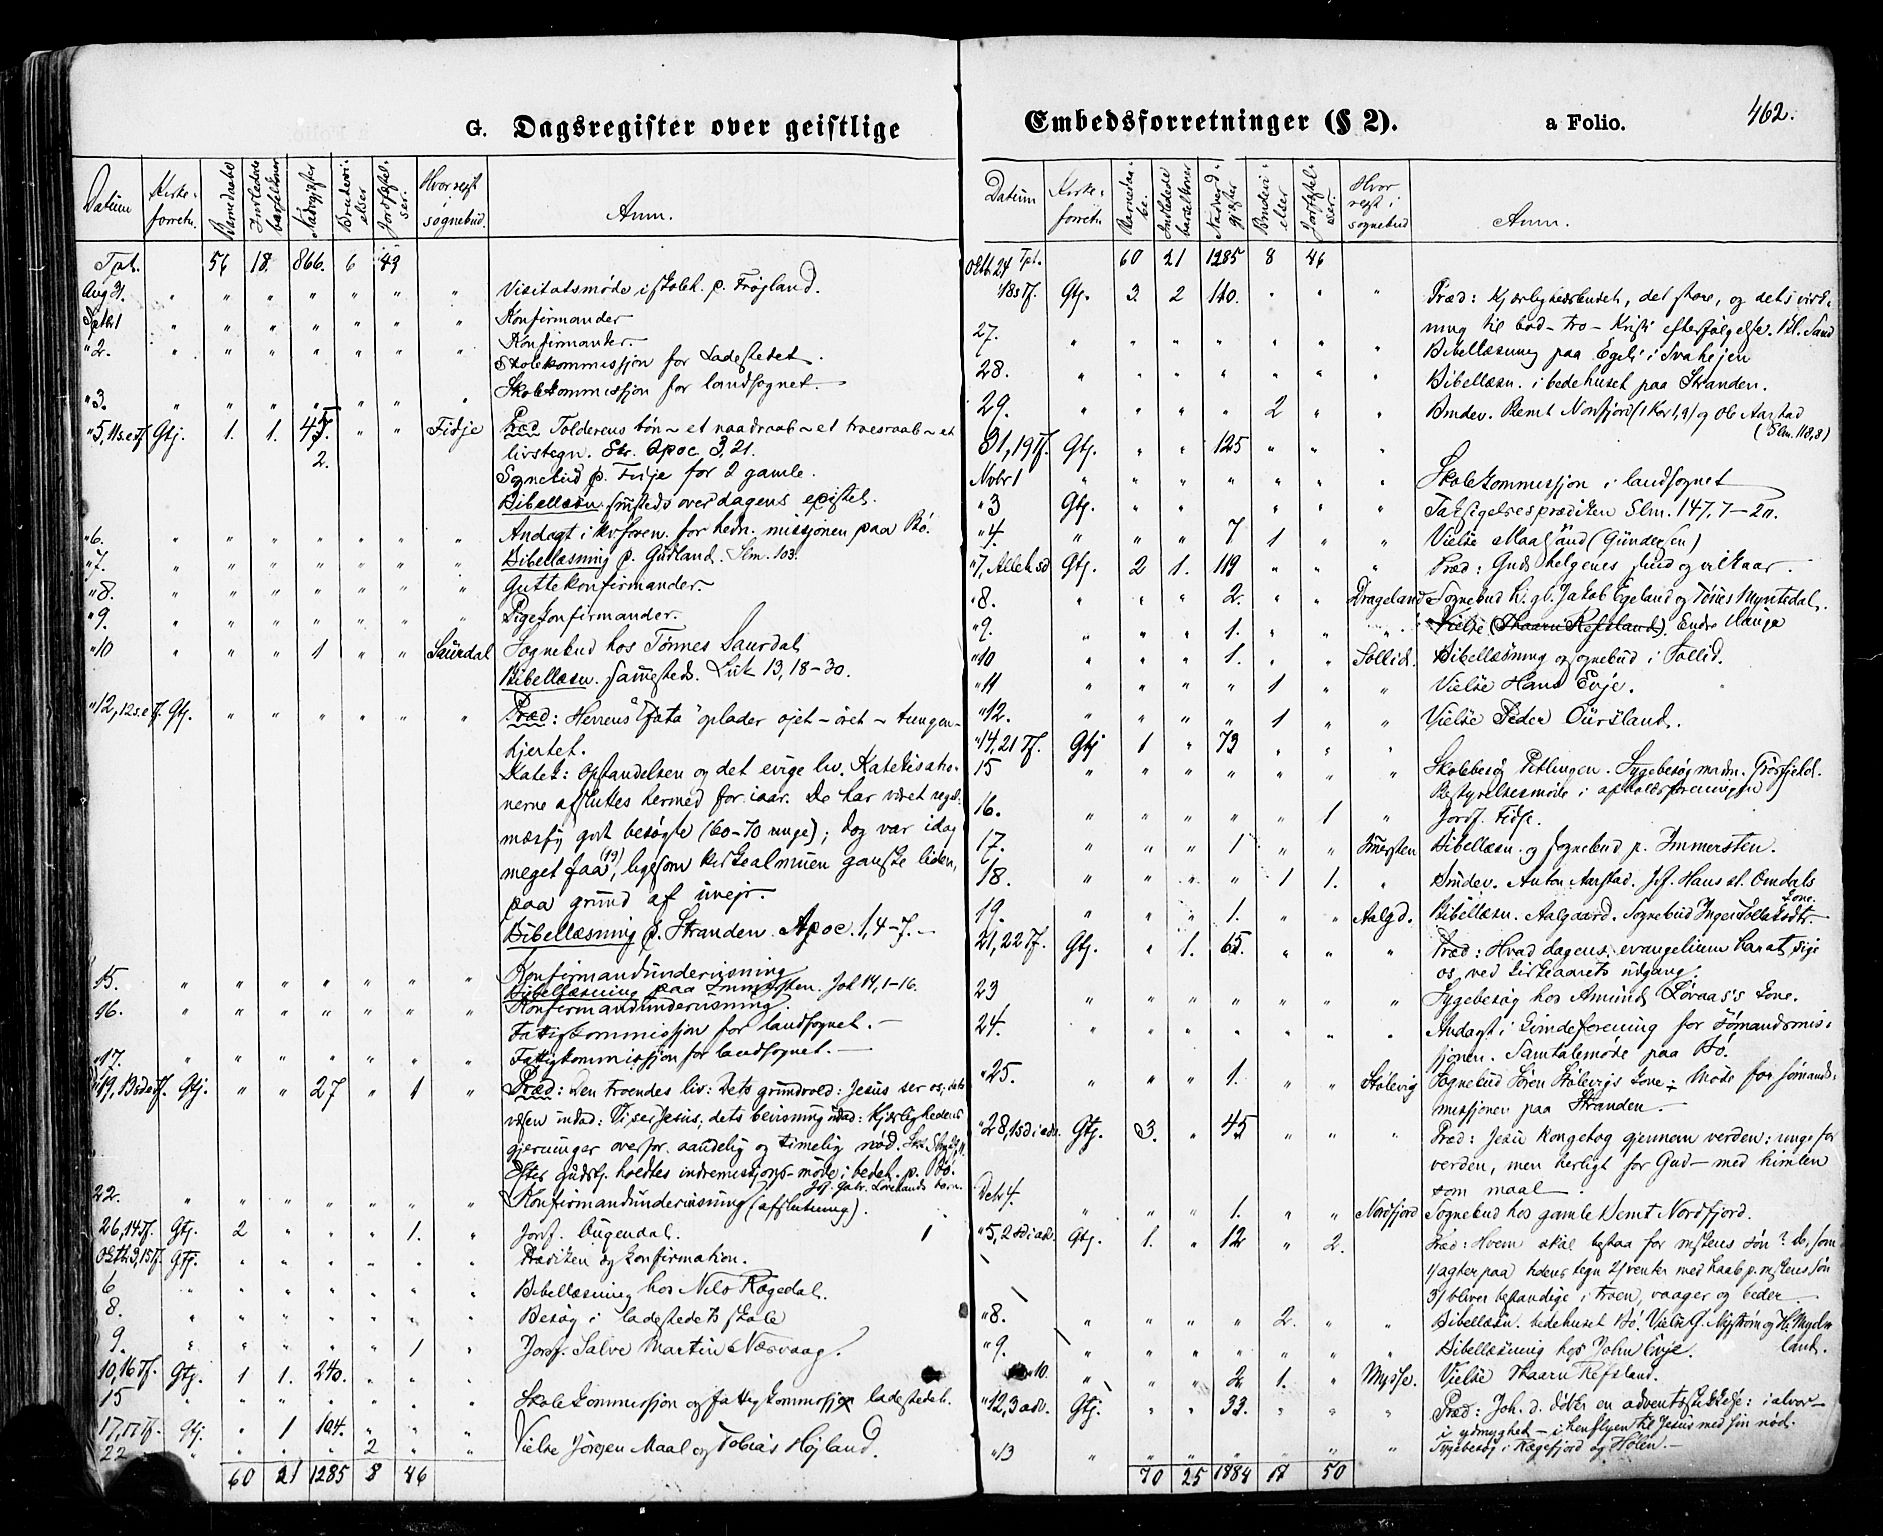 G. Dagsregister over geistlige
Datum Kirke- forretn. Barnedaabe Indledte barselkoner Nadvgjester Brudevi- elser Jordfæstel- ser. Hvor rejst i sognebud. Anm.
Tpt. 56 18. 866. 6 43
Aug 31. " " " " " " " Visitatsmøde i skoleh. p. Frøjland.
Septb 1 " " " " " " " Konfirmander
" 2. " " " " " " " Konfirmanter.
Skolekommissjon for Ladestedet.
" 3. " " " " " " " Skolekommissjon for landsognet.
" 5, 11 s.e.Tf. Gtj. 1. 1. 45. " " Fidje Præd Tolderens bøn – et naadraab – et troesraab – et
2. livstegn. Skr. Apoc 3,21.
Sognebud p. Fidje for 2 gamle.
Bibellæsn. smsteds over dagens epistel.
" 6. " " " " " " " Andagt i kv.foren. for hedn. missjonen paa Bø.
" 7. " " " " " " " Bibellæsning p. Gudland. Slm. 103.
" 8. " " " " " " " Guttekonfirmander.
" 9. " " " " " " " Pigekonfirmander.
" 10 " " " 1 " " Saurdal Sognebud hos Tønnes Saurdal
Bibellæsn. sammesteds. Luk 13, 18–30.
" 12, 12 s.e.Tf. Gtj. " " " " " " Præd: Herrens "Effata" oplader øjet – øret – tungen –
hjertet.
Katek: Opstandelsen og det evige liv. Katekisatio-
nerne afsluttes hermed for iaar. De har været regel-
mæssig godt besøgte (60–70 unge); dog var idag
meget faa (19), ligesom kirkealmuen ganske liden,
paa grund af uvejr.
Bibellæsning p. Stranden. Apoc. 1, 4–7.
15. " " " " " " " Konfirmandundervisning
Bibellæsning paa Immersten. Joh 14, 1–16.
16. " " " " " " " Konfirmandundervisning.
Fattigkommissjon for landsognet.
" 17. " " " " " " " Fattigkommissjon for landsognet.
" 19, 13 s.e.Tf. Gtj. " " 27 " 1 " Præd: Den troendes liv: Dets grundvold: Jesus ser os, dets
væsen indad: Vi ser Jesus, dets bevisning udad: Kjærlighedens
gjerninger overfor aandelig og timelig nød.
Efter gudstj. holdtes indremissjons-møde i bedeh. p. Bø.
22. " " " " " " " Konfirmandundervisning (afslutning).
26, 14 Tf. Gtj. 2 " " " 1. " Jordf. Augendal. 1
Oktb 3, 15 Tf. Gtj. " " " " " " Prædiken og konfirmation.
6 " " " " " " " Bibellæsning hos Nils Rægedal.
8. " " " " " " " Besøg i ladestedets skole
9. " " " " " 1 " Jordf. Salve Martin Næsvaag.
10, 16 Tf. Gtj. 1 1. 240. " " "
15 " " " " " " " Skolekommissjon og fattigkommissjon ladestedet.
17, 17 Tf. Gtj. " 1 104. " " "
22 " " " " 2 " " Vielse Jørgen Maal og Tobias Højland.
60 21 1285 8 46
Embedsforretninger (§ 2). a Folio. 462.
Datum Kirke- forretn. Barnedaa- be. Indledede barselkoner Nadverd- gjester Brudevi- elser Jordfæstel- ser. Hvor rejst i sognebud Anm.
Oktb. 24 Tpt. 60 21 1285 8 46
18 s Tf. Gtj. 3. 2 110. " " " Præd: Kjærlighedsbudet, det store, og dets virk-
ning til bod – tro – Kristi efterfølgelse. Kl. Sand
27. " " " " " " " Bibellæsning paa Egeli i Svahejen
28. " " " " " " " Bibellæsn. i bedehuset paa Stranden.
29. " " " " 2 " " Brudev. Bernt Nordfjord (1 Kor 1,9) og Ob Aarstad
(Slm. 118,8)
31, 19 Tf. Gtj. " " 125 " " "
Novbr 1 " " " " " " " Skolekommissjon i landsognet
" 3 Gtj. " " " " " " Taksigelsesprædiken Slm. 147, 7–20.
" 4. " " " 7 1 " " Vielse Maalsand (Gundersen)
" 7, Alleh.sd Gtj. 2 1. 119 " " " Præd: Guds helgenes sind og vilkaar.
" 8. " " " 2. " " Drageland Sognebud h. gl. Jakob Egeland og Tønnes Myntedal.
" 9. " " " 1. " " " Vielse (Skaaru Refsland). Endre Hauge
" 10 " " " 1. " " Sollid. Bibellæsning og sognebud i Sollid.
" 11 " " " " 1 " " Vielse Hans Evje.
" 12. " " " " 1 " " Vielse Peder Aursland.
" 14, 21 Tf. Gtj 1 " 73 " " "
15 " " " " " " " Skolebesøg Pitlingen. Sygebesøg mdm. Trosfjeld.
Bestyrelsesmøde i afholdsforeningen
16. " " " " " 1 " Jordf. Fidje.
17. " " " 1 " " Immersten Bibellæsn. og sognebud p. Immersten.
18. " " " " 1 1. " Brudev. Anton Aarstad. Jdf. Hans st. Omdals
kone.
19. " " " 1. " " Aalgd. Bibellæsn. Aalgaard. Sognebud Inger Tolleksdtr.
21, 22 Tf. Gtj. " 1. 65. " " " Præd: Hvad dagens evangelium har at sige
os ved kirkeaarets udgang.
23 " " " " " " " Sygebesøg hos Amund Løvaas's kone.
24. " " " " " " " Andagt i kvindeforening for sømandsmis-
sjonen. Samtalemøde paa Bø.
" 25. " " " 1. " " Stølevig Sognebud Søren Stølevigs kone; Møde for sømands-
missjonen paa Stranden.
" 28, 1 sd i adv. Gtj. 3. " 45 " " " Præd: Jesu kongetog gjennem verden: ringe for
verden, men herligt for Gud – med himlen
som maal.
Debr 4. " " " 1. " " Nordfjord Sognebud hos gamle Bernt Nordfjord.
" 5, 2 sd i adv. Gtj. 1. " 12 " 2. Præd: Hvem skal bestaa for mskens søn? De, som
1/ agter paa tidens tegn 2/ venter med haab p. mskens søn
3/ bliver bestandige i troen, vaager og beder
" 8. " " " " 2. " " Bibellæsn. bedehuset Bø. Vielse G. Nystrøm og H. Mydland.
" 9. " " " " " " " Bibellæsning hos John Evje.
" 10. " " " 2 1. " Mydse. Vielse Skaaru Refsland.
" 12, 3 adv. Gtj. " " 33. " " " Præd: Joh. d. døber en adventsskikkelse: i alvor –
i ydmyghet – i henflyen til Jesus med sin nød.
" 13 " " " " " " " Sygebesøg i Rægefjord og Hølen.
70 25 1884 17 50